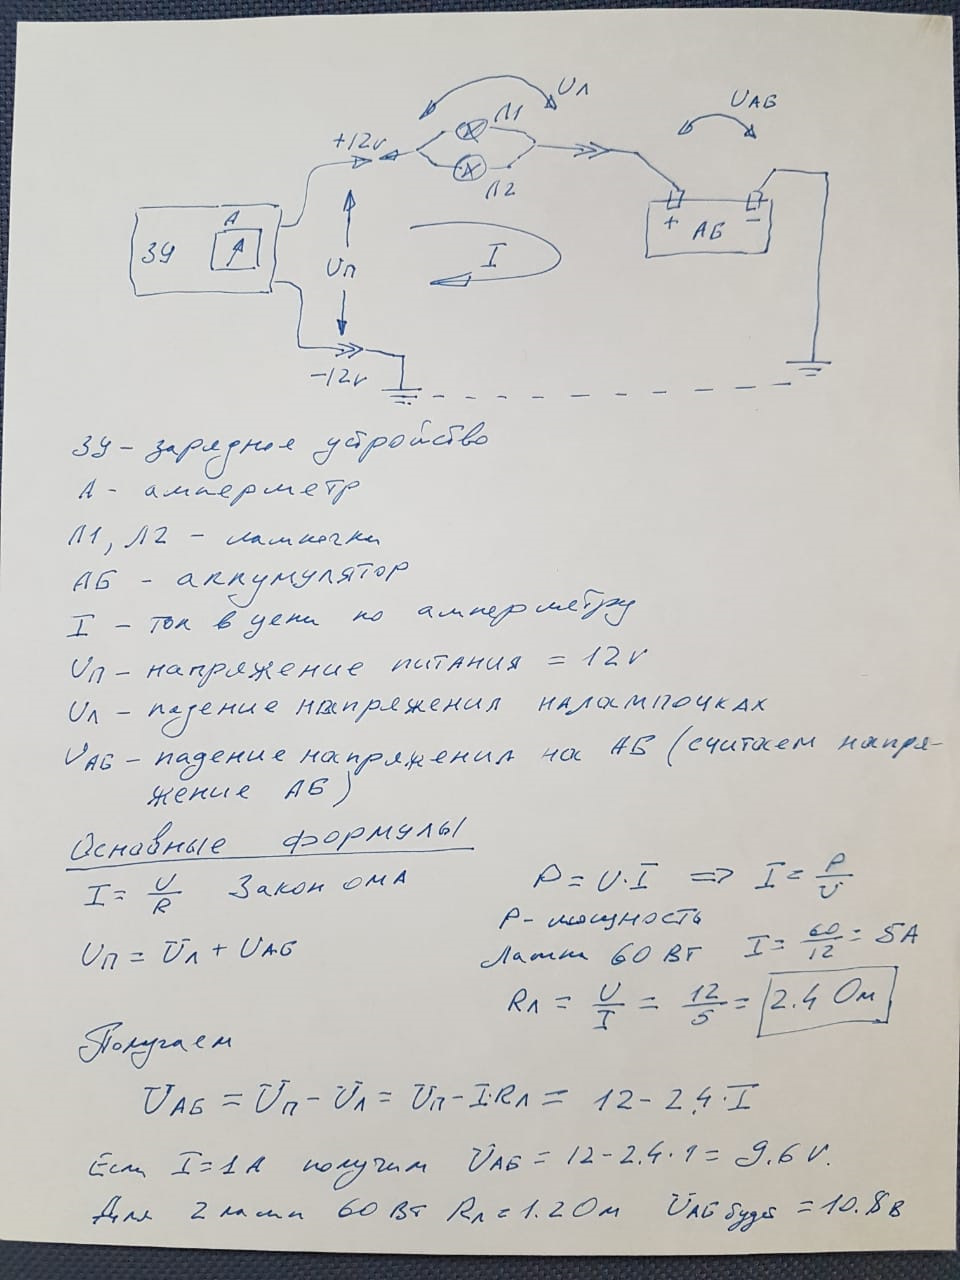 UЛ
Л1
UАБ
+12v
Л2
А
ЗУ
А
Uп
I
+ АБ -
-12v
ЗУ - зарядное устройство
А - амперметр
Л1, Л2 - лампочки
АБ - аккумулятор
I - ток в цепи по амперметру
Uп - напряжение питания = 12v
UЛ - падение напряжения на лампочках
UАБ - падение напряжения на АБ (считаем напря-
жение АБ)
Основные формулы
I = U/R Закон ома
P = U·I => I = P/U
P - мощность
Uп = UЛ + UАБ
Лампа 60 Вт I = 60/12 = 5А
RЛ = U/I = 12/5 = 2.4 Ом
Получаем
UАБ = Uп - UЛ = Uп - I·RЛ = 12 - 2,4·I
Если I = 1А получим UАБ = 12 - 2.4·1 = 9.6 v.
Для 2 ламп 60 Вт RЛ = 1.2 Ом UАБ будет = 10.8 В